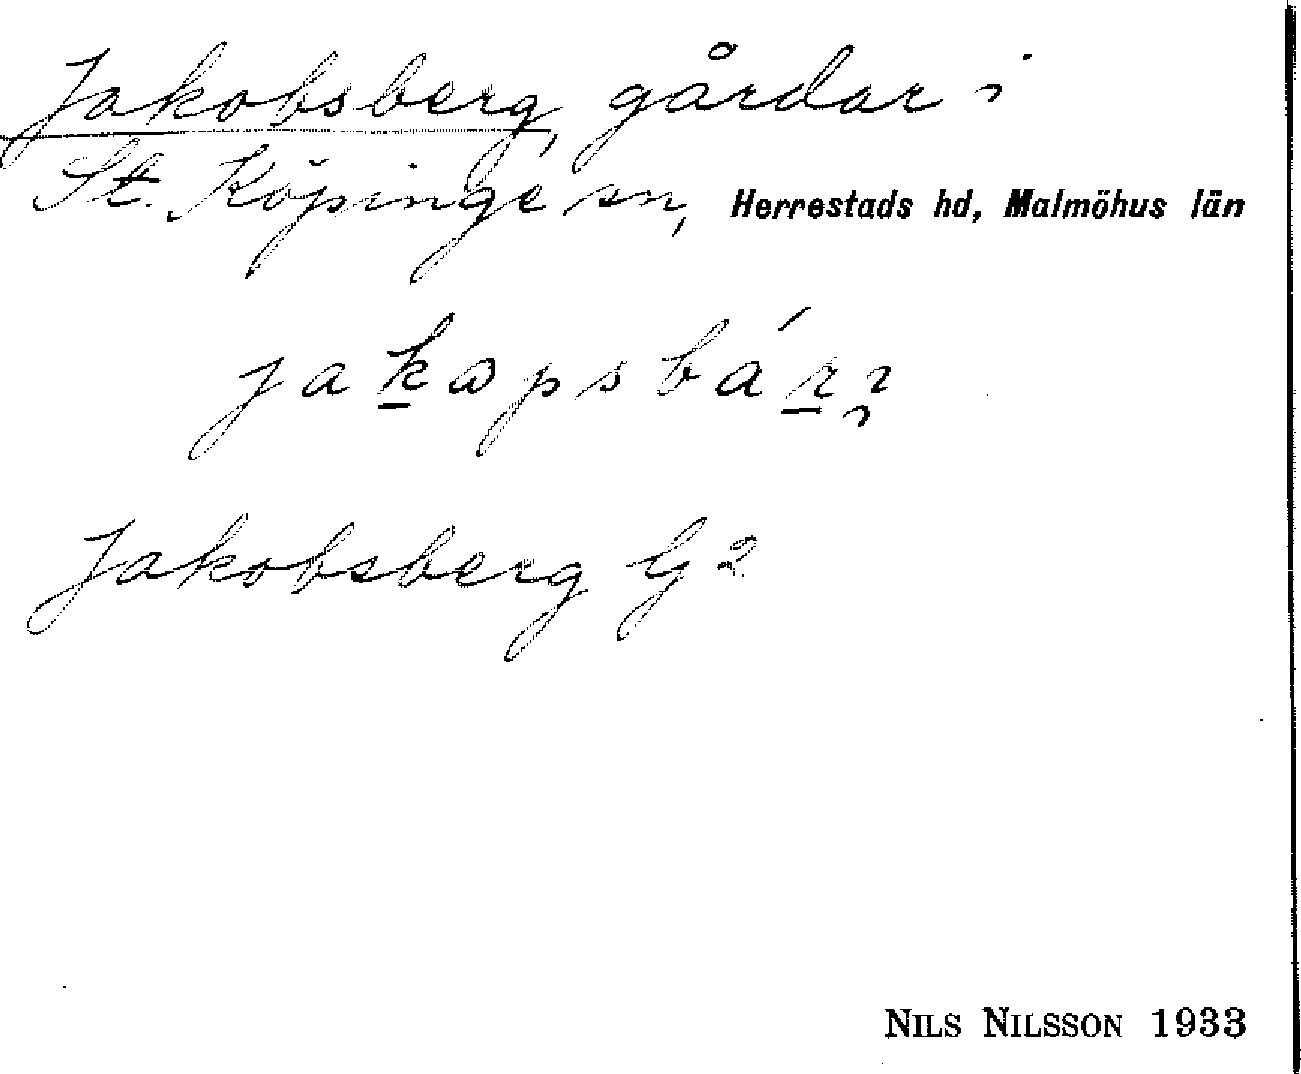 Jakobsberg, gårdar i
St. Köpinge sn, Herrestads hd, Malmöhus län
Jakobsberg G 2
NILS NILSSON 1933